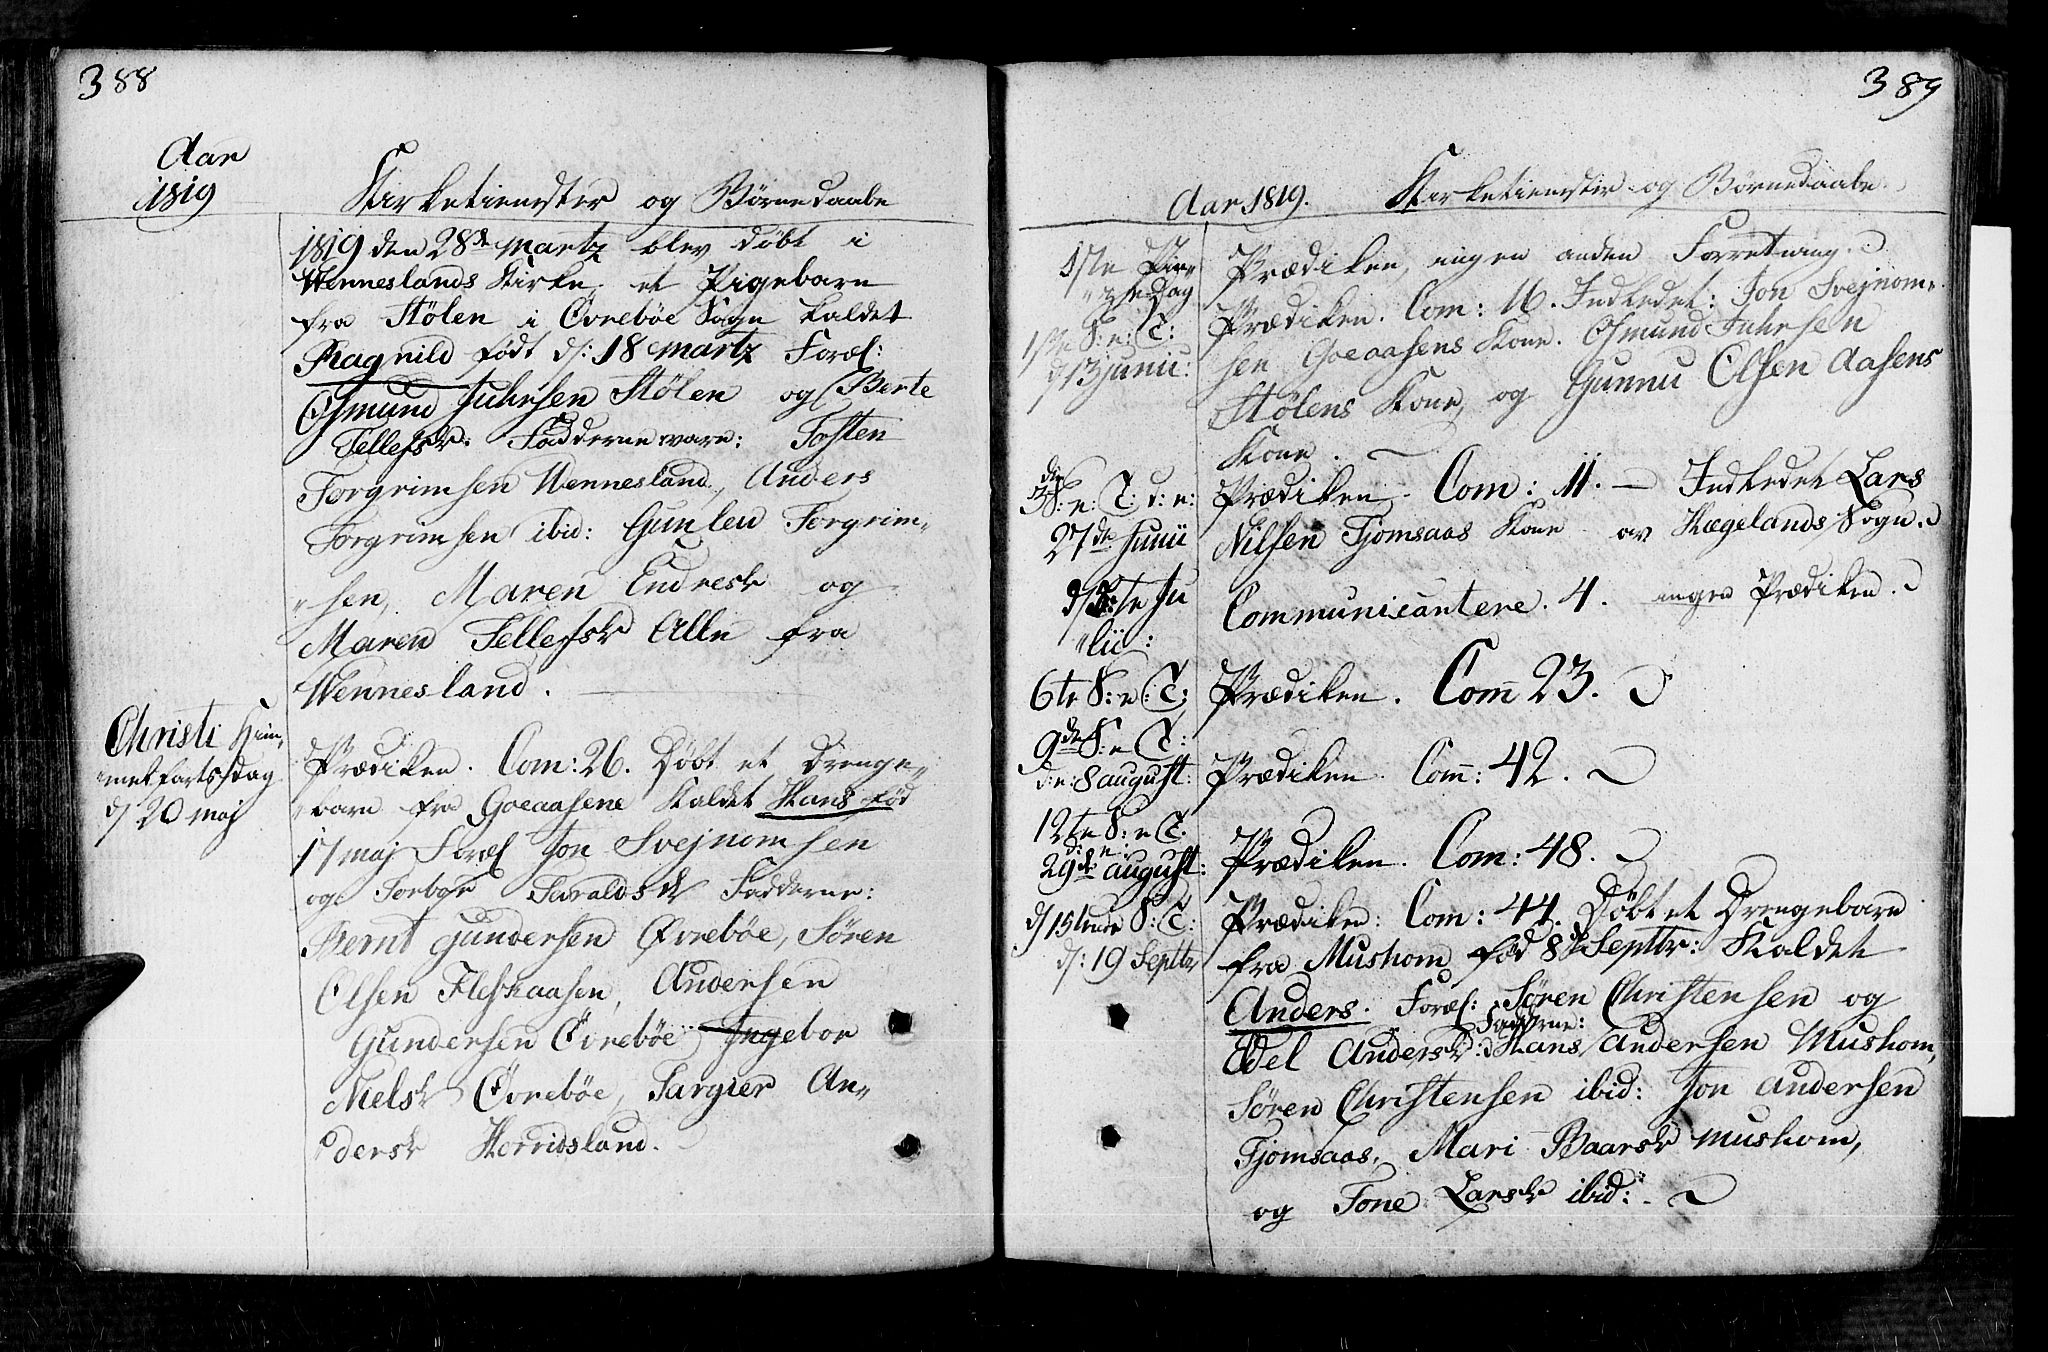 388
Aar
1819
Kirketienester og Børnedaabe
1819 den 28de Martz blev døbt i
Wenneslands Kirke et Pigebarn
fra Stølen i Øvrebøe Sogn kaldet
Ragnild født d: 18 Martz Foræl:
Osmund Juhrsen Stølen og Berte
Tellefsdr. Fadderne vare: Tosten
Torgrimsen Wennesland, Anders
Torgrimsen ibid: Gunleu Torgrim-
sen, Maren Endresdr og
Maren Tellefsdr Alle fra
Wennesland.
Christi Him-
melfartsdag
d/ 20 maj
Prædiken. Com: 26. Døbt et Drenge-
barn fra Goeaasene Kaldet Hans fød
17 maj Foræl Jon Svejnomsen
og Torbor Taraldsdr Fadderne:
Bernt Gundersen Øvrebøe, Søren
Olsen Fleskaasen, Andersen
Gundersen Øvrebøe Ingebor
Nielsdr Øvrebøe, Sargier An-
dersdr Horridsland.
389
Aar 1819. Kirketienester og Børnedaabe.
1ste Pin-
tsedag
Prædiken, ingen anden Forretning.
1ste S: e: T:
d 13 junii:
Prædiken. Com: 16. Indledet: Jon Svejnom-
sen Goeaasens Kone. Osmund Juhrsen
Stølens Kone, og Gunnu Olsen Aasens
Kone.
3die S: e: T: d: e:
27de Junii
Prædiken. Com: 11. Indledet Lars
Nilsen Tjomsaas Kone av Hægelands Sogn.
Ju
lii:
Communicantere. 4. ingen Prædiken.
6te S: e: T:
Prædiken. Com 23.
9de S: e T:
d: e: 8 august:
Prædiken. Com: 42.
12te S: e T.
d: e:
29de august:
Prædiken. Com: 48.
d/ 15tende S: T:
d: 19 Septbr
Prædiken: Com: 44. Døbt et Drengebarn
fra Mushom fød 8de Septbr: Kaldet
Anders. Foræl: Søren Christensen og
Edel Andersdr: Fadderne: Hans Andersen Mushom,
Søren Christensen ibid: Jon Andersen
Tjomsaas, Mari Baarsdr Mushom,
og Tone Larsdr ibid: